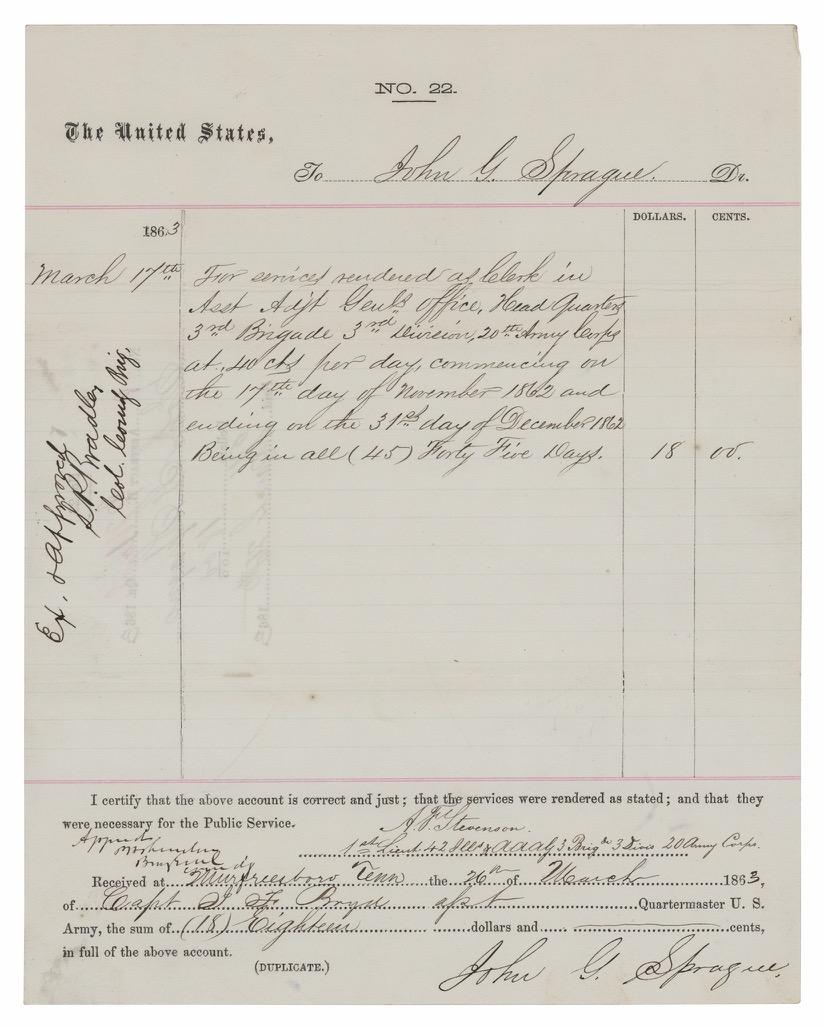 NO. 22.
The United States,
To John G. Sprague. Dr.
DOLLARS. CENTS.
1863
March 17th For services rendered as Clerk in
Asst Adjt Genls office, Head Quarters
3rd Brigade 3rd Division, 20th Army Corps
at .40 cts per day, commencing on
the 17th day of November 1862 and
ending on the 31st day of December 1862
Being in all (45) Forty Five Days. 18 00.
Ex. & Approved
L.P. Bradley
Col. Comdg Brig.
I certify that the above account is correct and just; that the services were rendered as stated; and that they
were necessary for the Public Service.
A. F. Stevenson.
1st Lieut 42 Ills & AAAG 3 Brigde 3 Divis 20 Army Corps.
Received at Murfreesboro Tenn the 26th of March 1863,
of Capt Quartermaster U. S.
Army, the sum of (18) Eighteen dollars and cents,
in full of the above account.
(DUPLICATE.)
John G. Sprague.